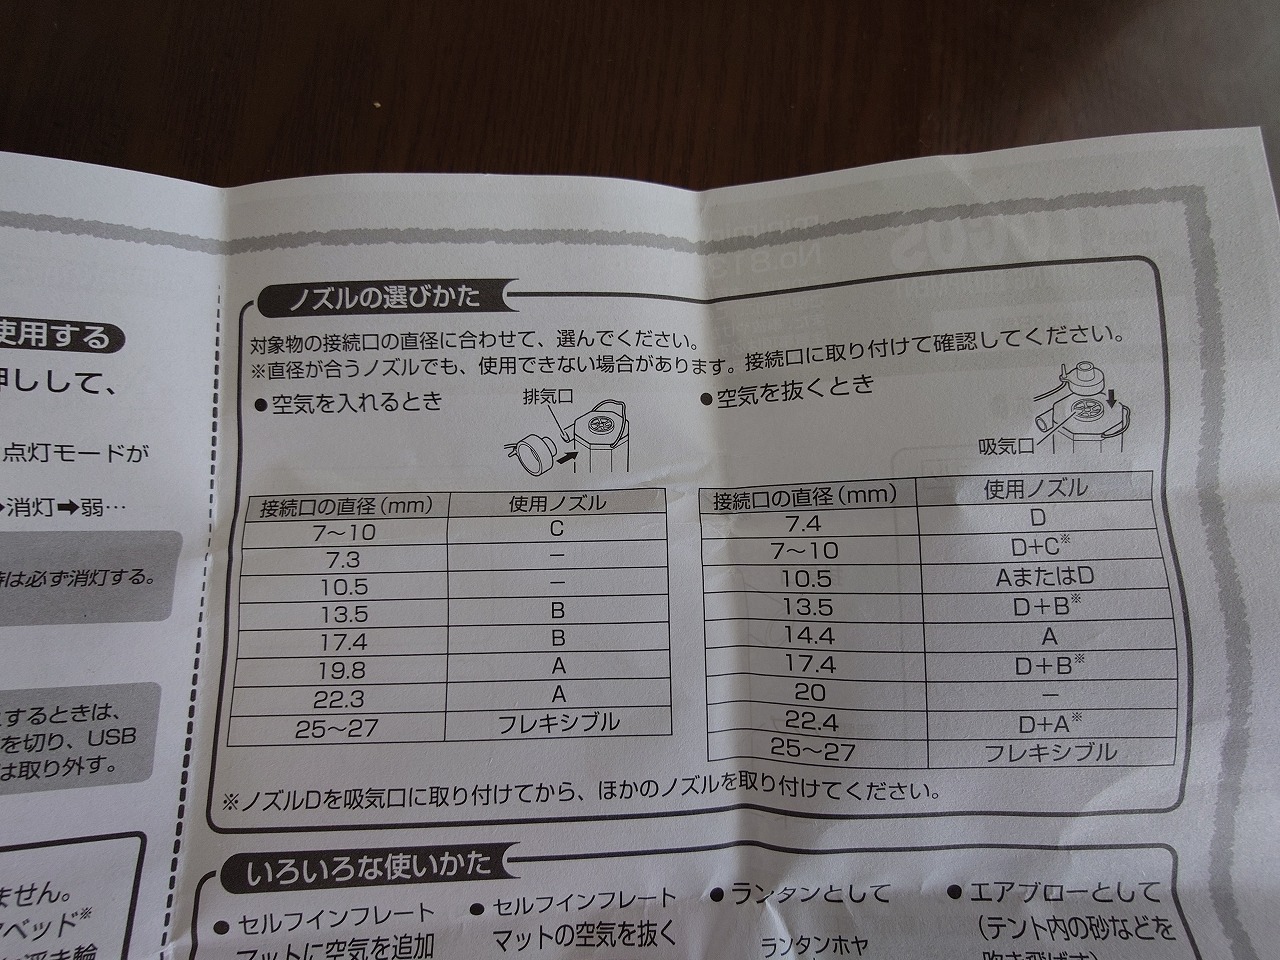 使用する
押しして、
点灯モードが
➡消灯➡弱…
時は必ず消灯する。
するときは、
を切り、USB
は取り外す。
ません。
ベッド※
浮き輪
ノズルの選びかた
対象物の接続口の直径に合わせて、選んでください。
※直径が合うノズルでも、使用できない場合があります。接続口に取り付けて確認してください。
●空気を入れるとき
排気口
接続口の直径(mm) 使用ノズル
7〜10 C
7.3 −
10.5 −
13.5 B
17.4 B
19.8 A
22.3 A
25〜27 フレキシブル
●空気を抜くとき
吸気口
接続口の直径(mm) 使用ノズル
7.4 D
7〜10 D+C※
10.5 AまたはD
13.5 D+B※
14.4 A
17.4 D+B※
20 −
22.4 D+A※
25〜27 フレキシブル
※ノズルDを吸気口に取り付けてから、ほかのノズルを取り付けてください。
いろいろな使いかた
●セルフインフレート
マットに空気を追加
●セルフインフレート
マットの空気を抜く
●ランタンとして
ランタンホヤ
●エアブローとして
(テント内の砂などを
吹き飛ばす)